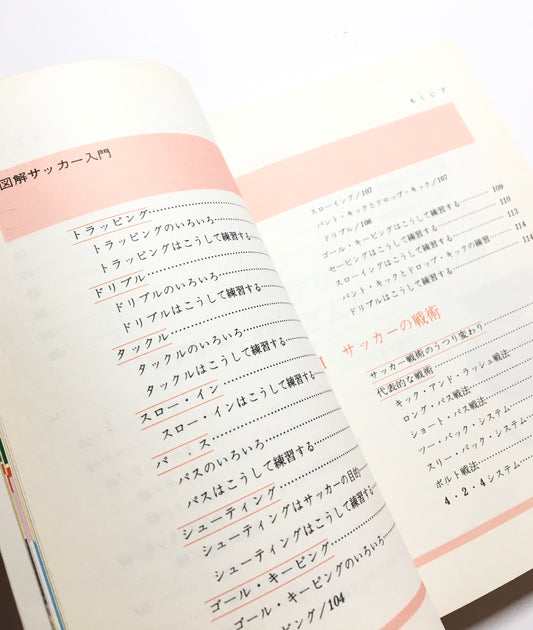 図解サッカー入門
トラッピング
トラッピングのいろいろ
トラッピングはこうして練習する
ドリブル
ドリブルのいろいろ
ドリブルはこうして練習する
タックル
タックルのいろいろ
タックルはこうして練習する
スロー・イン
スロー・インはこうして練習する
パ ス
パスのいろいろ
パスはこうして練習する
シューティング
シューティングはサッカーの目的
シューティングはこうして練習する
ゴール・キーピング
ゴール・キーピングのいろいろ
ピング/104
もくじ 7
スローイング/107
パント・キックとドロップ・キック/107
ドリブル/108
ゴール・キーピングはこうして練習する 109
セービングはこうして練習する 110
スローイングはこうして練習する 113
パント・キックとドロップ・キックの練習 114
ドリブルはこうして練習する
サッカーの戦術
サッカー戦術のうつり変わり
代表的な戦術
キック・アンド・ラッシュ戦法
ロング・パス戦法
ショート・パス戦法
ツー・バック・システム
スリー・バック・システム
ボルト戦法
4・2・4システム